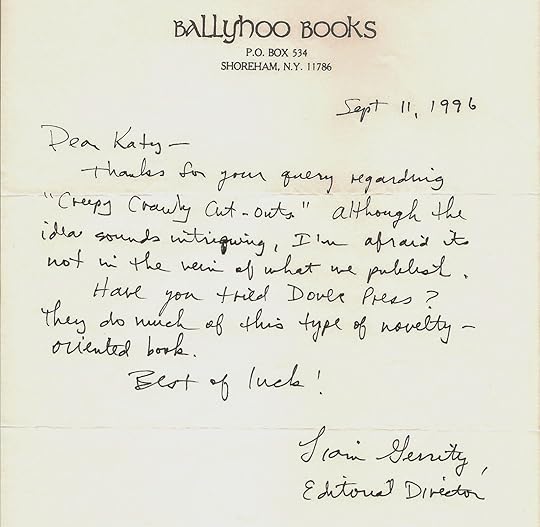 BALLYHOO BOOKS
P.O. BOX 534
SHOREHAM, N.Y. 11786
Sept 11, 1996
Dear Katy—
Thanks for your query regarding
"Creepy Crawly Cut-outs" Although the
idea sounds intriguing, I'm afraid its
not in the vein of what we publish.
Have you tried Dover Press?
They do much of this type of novelty-
oriented book.
Best of luck!
Liam Gerrity,
Editorial Director